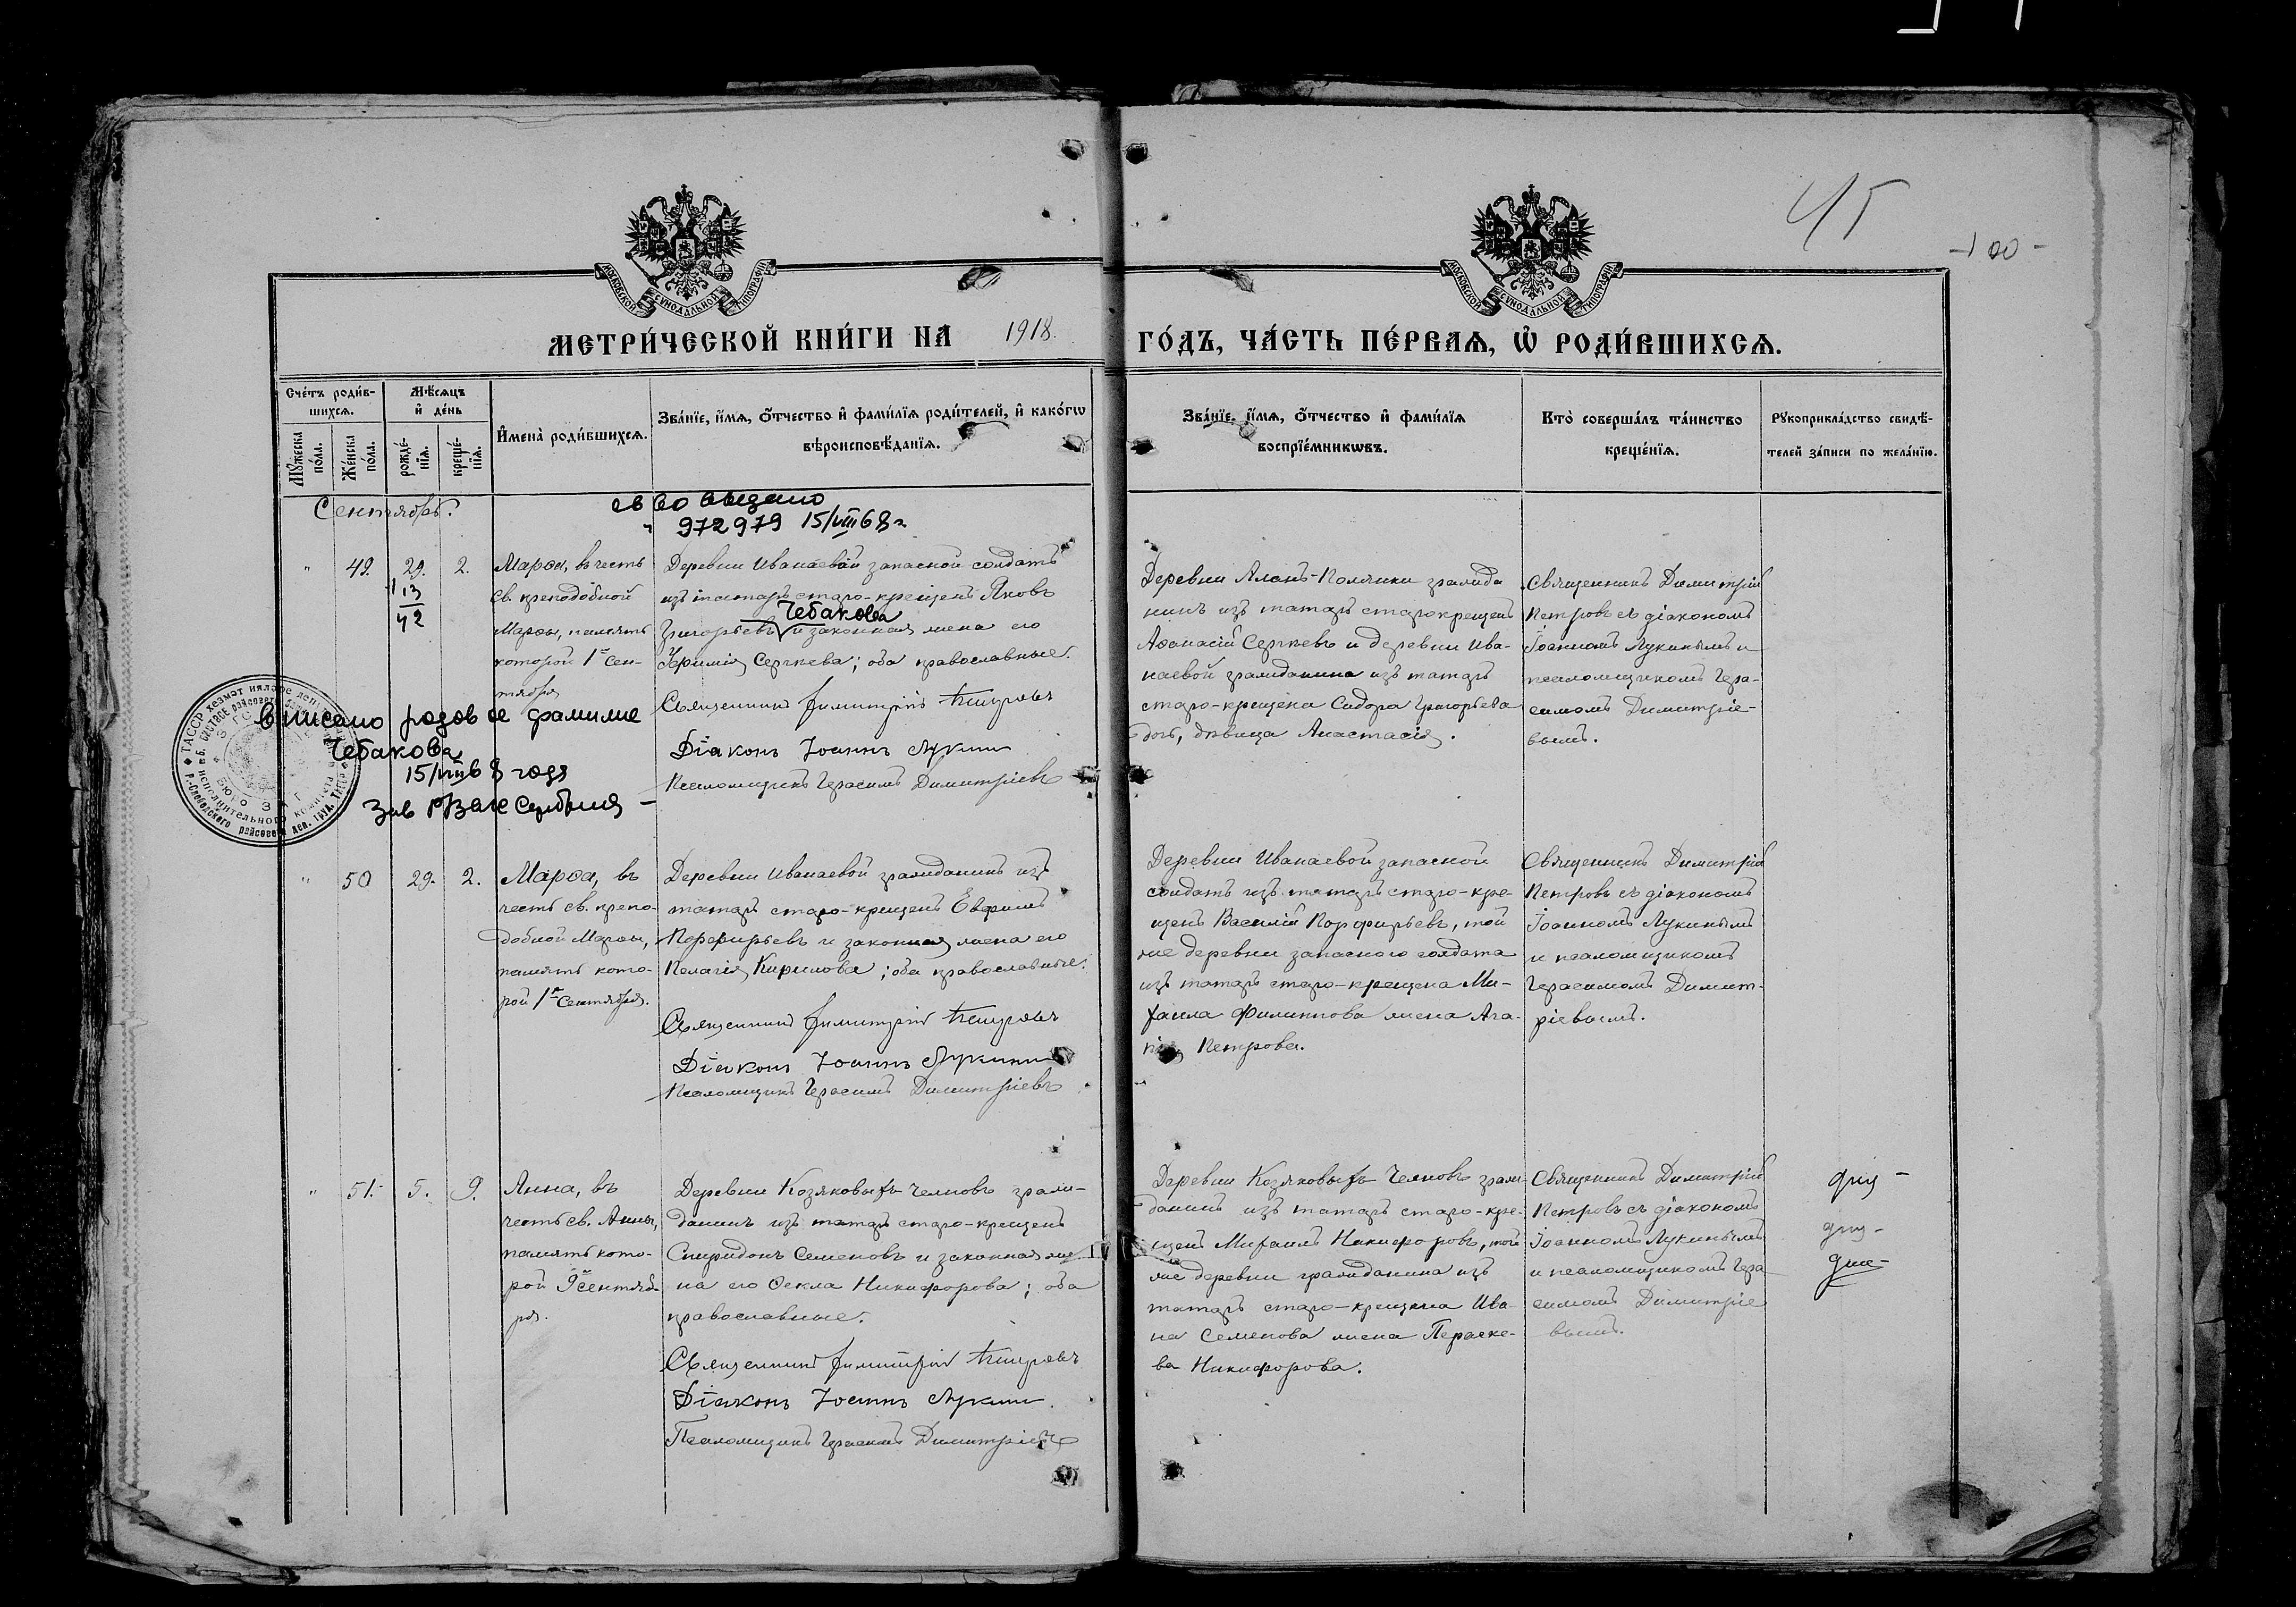 45
-100-
МОСКОВСКОЙ СѴНОДАЛЬНОЙ ТИПОГРАФІИ
МОСКОВСКОЙ СѴНОДАЛЬНОЙ ТИПОГРАФІИ
МЕТРИ́ЧЕСКОЙ КНИ́ГИ НА 1918. ГО́ДЪ, ЧА́СТЬ ПЕ́РВАѦ, Ѡ҆ РОДИ́ВШИХСѦ.
Сче́тъ роди́в-
шихсѧ.
Мꙋ́жеска по́ла.
Же́нска по́ла.
Мѣ́сѧцъ
и҆ де́нь
рожде́-
нїѧ.
креще́-
нїѧ.
И҆мена̀ роди́вшихсѧ.
Зва́нїе, и҆́мѧ, ѻ҆́тчество и҆ фами́лїѧ роди́телей, и҆ како́гѡ
вѣроисповѣ́данїѧ.
Зва́нїе, и҆́мѧ, ѻ҆́тчество и҆ фами́лїѧ
воспрїе́мникѡвъ.
Кто̀ соверша́лъ та́инство
креще́нїѧ.
Рꙋкоприкла́дство свидѣ́-
телей за́писи по жела́нїю.
Сентябрь.
св во выдано
972979 15/VIII 68 г
" 49. 29. 2.
13
42
Марѳа, въ честь
св. преподобной
Марѳы, память
которой 1го Сен-
тября
Деревни Иванаевой запасной солдатъ
изъ татаръ старо-крещенъ Яковъ
Чебакова
Григорьевъ и законная жена его
Сергѣева; оба православные.
Священникъ Димитрій Петровъ
Діаконъ Іоаннъ Лукинъ
Псаломщикъ Герасимъ Димитріевъ
Деревни Аланъ-Полянки гражда
нинъ изъ татаръ старокрещенъ
Аѳанасій Сергѣевъ и деревни Ива-
наевой гражданина изъ татаръ
старо-крещена Сидора Григорьева
дочь, дѣвица Анастасія.
Священникъ Димитрій
Петровъ съ діакономъ
Іоанномъ Лукинымъ и
псаломщикомъ Гера-
симомъ Димитріе-
вымъ.
вписано родовое фамилие
Чебакова
15/VIII 68 года
Зав РЗАГС
ТАССР
БЮРО ЗАГС
исполнительного комитета
Р.-Слободского райсовета деп. труд.
" 50 29. 2.
Марѳа, въ
честь св. препо-
добной Марѳы,
память кото-
рой 1го Сентября.
Деревни Иванаевой гражданинъ изъ
татаръ старо-крещенъ Евфимъ
Порфирьевъ и законная жена его
Пелагія Кирилова; оба православные.
Священникъ Димитрій Петровъ
Діаконъ Іоаннъ Лукинъ
Псаломщикъ Герасимъ Димитріевъ
Деревни Иванаевой запасной
солдатъ изъ татаръ старо-кре-
щенъ Василій Порфирьевъ, той
же деревни запасного солдата
изъ татаръ старо-крещена Ми-
хаила Филиппова жена Ага-
пія Петрова.
Священникъ Димитрій
Петровъ съ діакономъ
Іоанномъ Лукинымъ
и псаломщикомъ
Герасимомъ Димит-
ріевымъ.
" 51. 5. 9.
Анна, въ
честь св. Анны,
память кото-
рой 9го сентяб-
ря.
Деревни Козяковыхъ Челновъ граж-
данинъ изъ татаръ старо-крещенъ
Спиридонъ Семеновъ и законная же-
на его Ѳекла Никифорова; оба
православные.
Священникъ Димитрій Петровъ
Діаконъ Іоаннъ Лукинъ.
Псаломщикъ Герасимъ Димитріевъ
Деревни Козяковыхъ Челновъ граж-
данинъ изъ татаръ старо-кре-
щенъ Михаилъ Никифоровъ, той
же деревни гражданина изъ
татаръ старо-крещена Ива-
на Семенова жена Параске-
ва Никифорова.
Священникъ Димитрій
Петровъ съ діакономъ
Іоанномъ Лукинымъ
и псаломщикомъ Гера
симомъ Димитріе
вымъ.